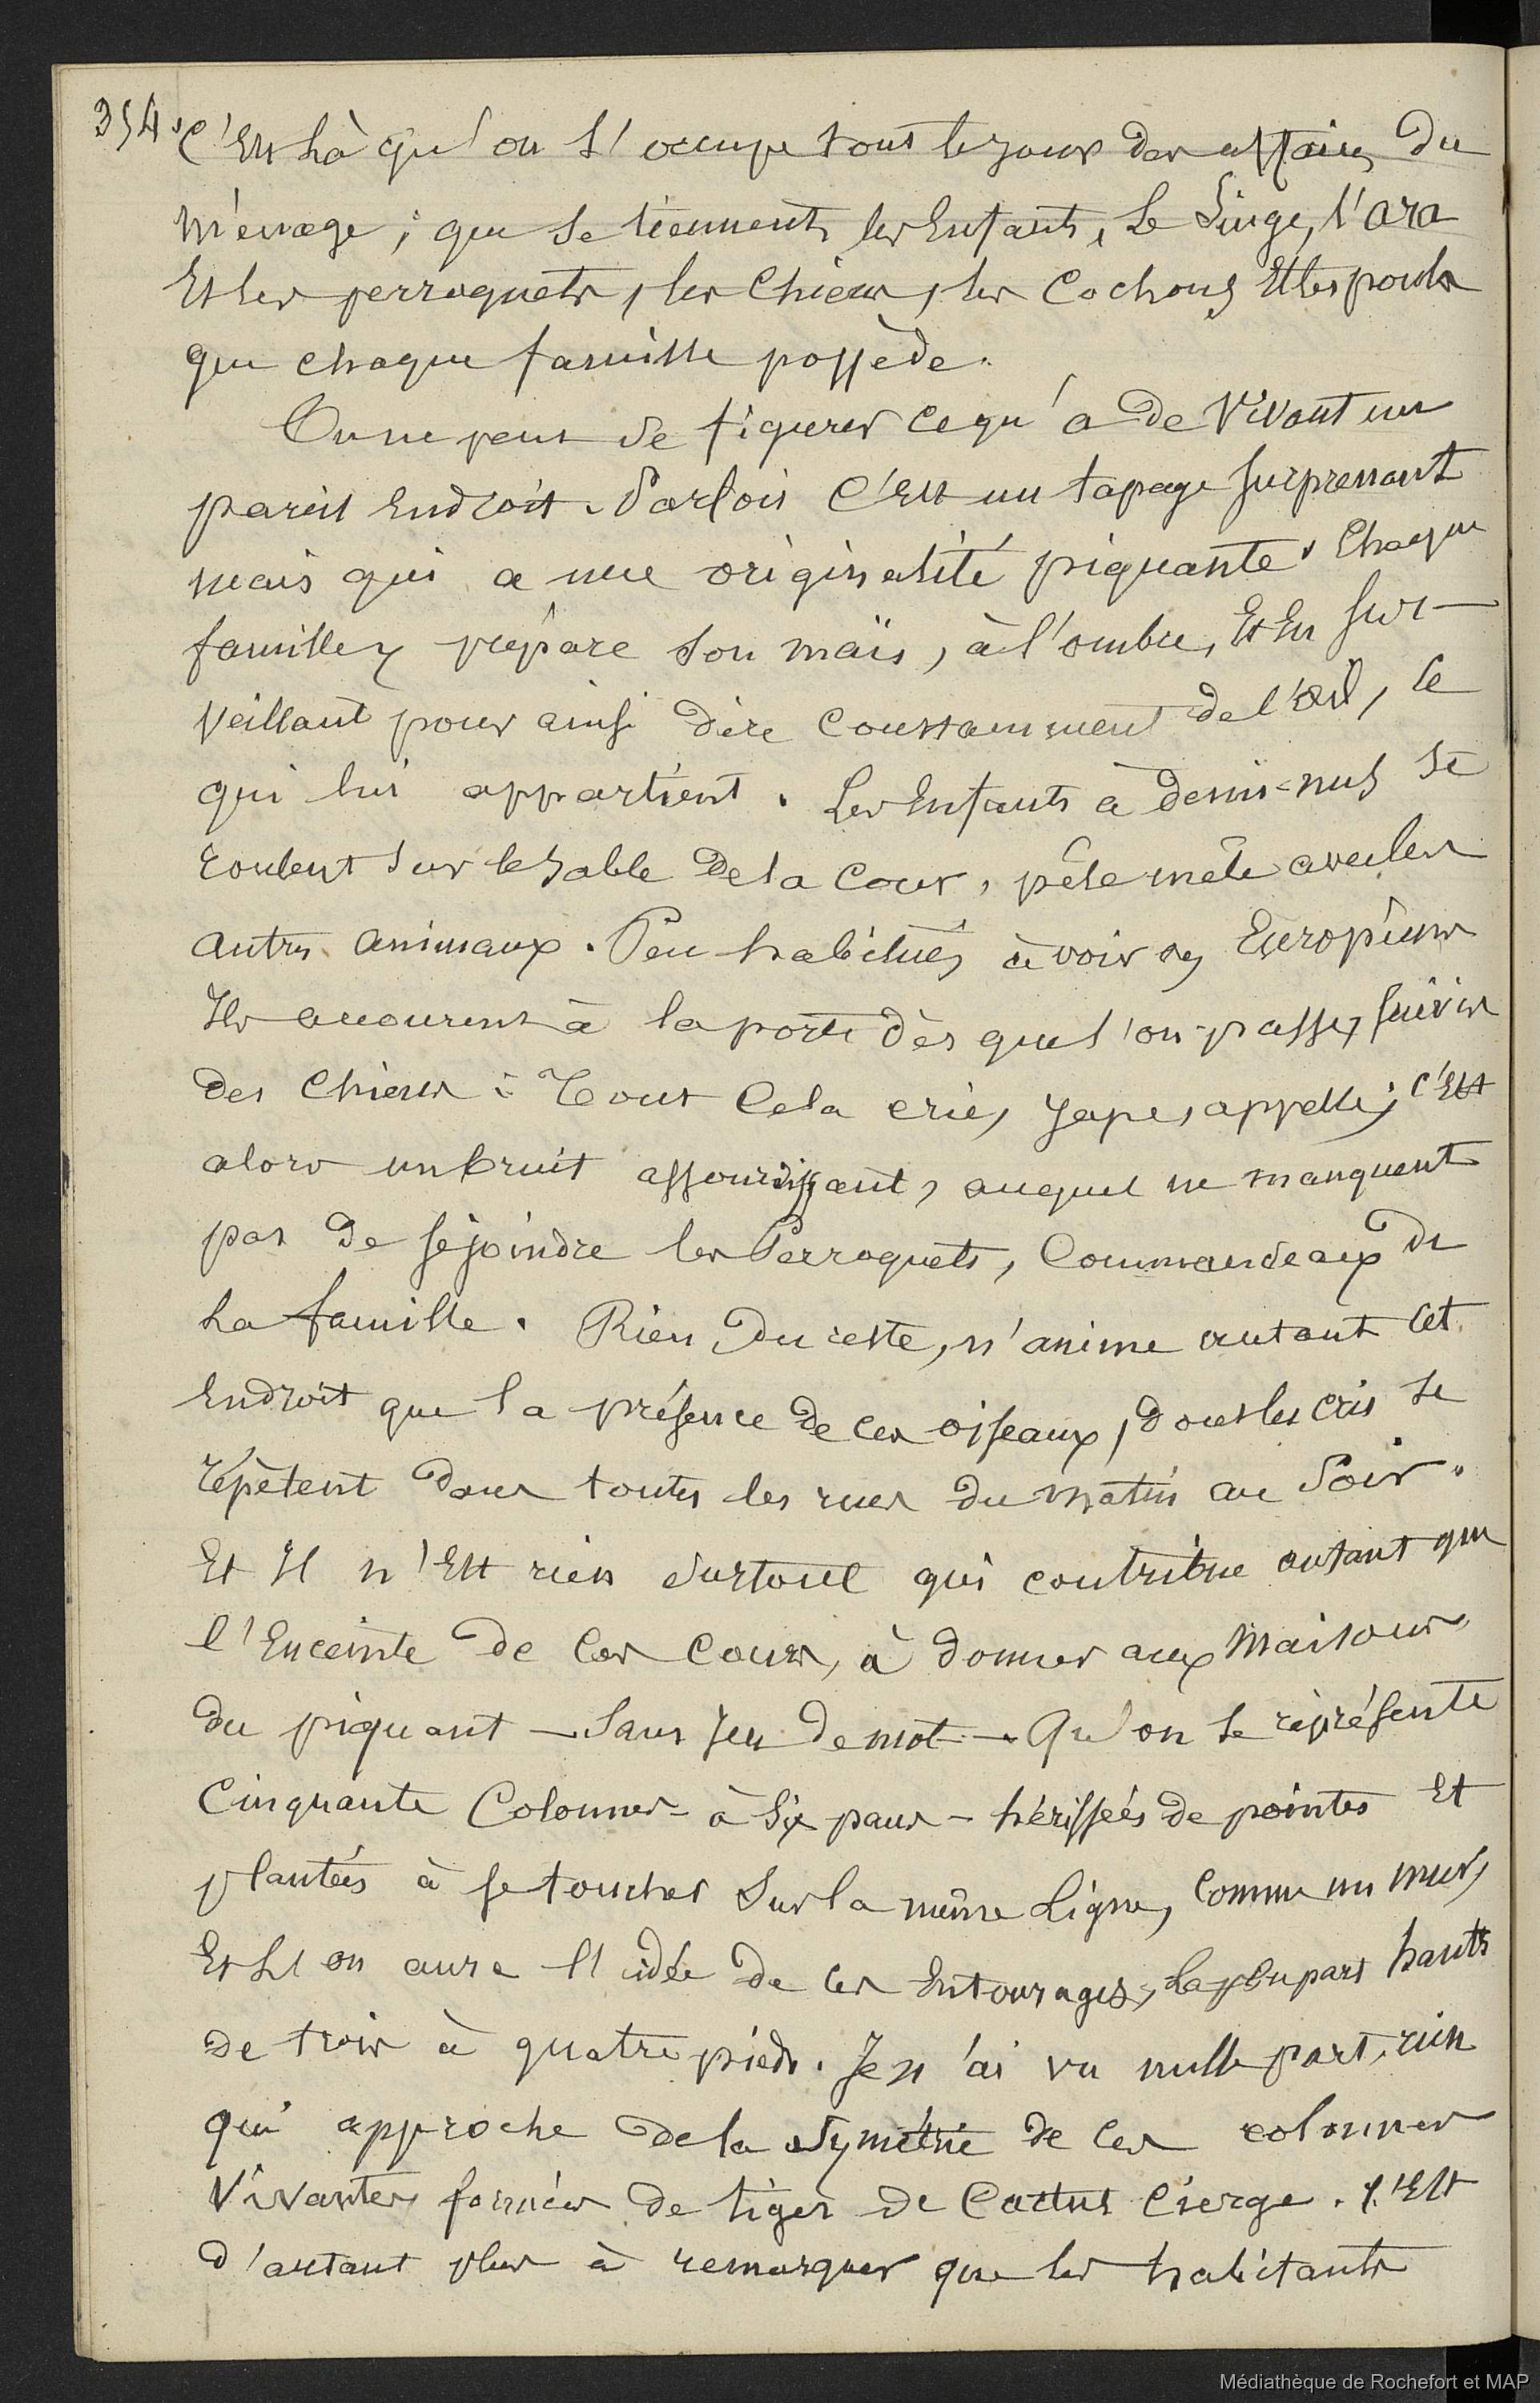 354
C'Est Là qu'on S'occupe tout le jour des affaires Du
Ménage ; que Se tiennent les Enfants, Le Singe, l'ara
Et les perroquets, les Chiens, les Cochons Et les poules
que chaque famille possède.
On ne peut Se figurer Ce qu'a De Vivant un
pareil Endroit. Parfois C'Est un tapage Surprenant
mais qui a une originalité piquante. Chaque
famille y prépare Son maïs, à l'ombre, Et En Sur-
veillant pour ainsi Dire Constamment de l'œil, Ce
qui lui appartient. Les Enfants à Demi-nus Se
roulent Sur le Sable De la Cour, pêle mêle avec les
autres animaux. Peu habitués à voir des Européens
Ils accourent à la porte Dès que l'on passe, Suivis
Des Chiens : Tout Cela crie, jape, appelle ; C'Est
alors un bruit assourdissant, auquel ne manquent
pas De Se joindre les Perroquets, Commandeaux De
La famille. Rien Du reste, n'anime autant Cet
Endroit que la présence De Ces oiseaux, Dont les Cris Se
répètent Dans toutes les rues Du Matin au Soir.
Et Il n'Est rien Surtout qui contribue autant que
l'Enceinte De Ces Cours, à Donner aux Maisons
Du piquant — Sans Jeu De mot — Qu'on Se représente
Cinquante Colonnes - à Six pans - hérissées De pointes Et
plantées à Se toucher Sur la même Ligne, Comme un mur,
Et L'on aura l'idée De Ces Entourages, La plupart hauts
De trois à quatre pieds. Je n'ai vu nulle part, rien
qui approche De la Symétrie De Ces colonnes
Vivantes, formées De tiges De Cactus Cierge. C'Est
D'autant plus à remarquer que les habitants
Médiathèque de Rochefort et MAP